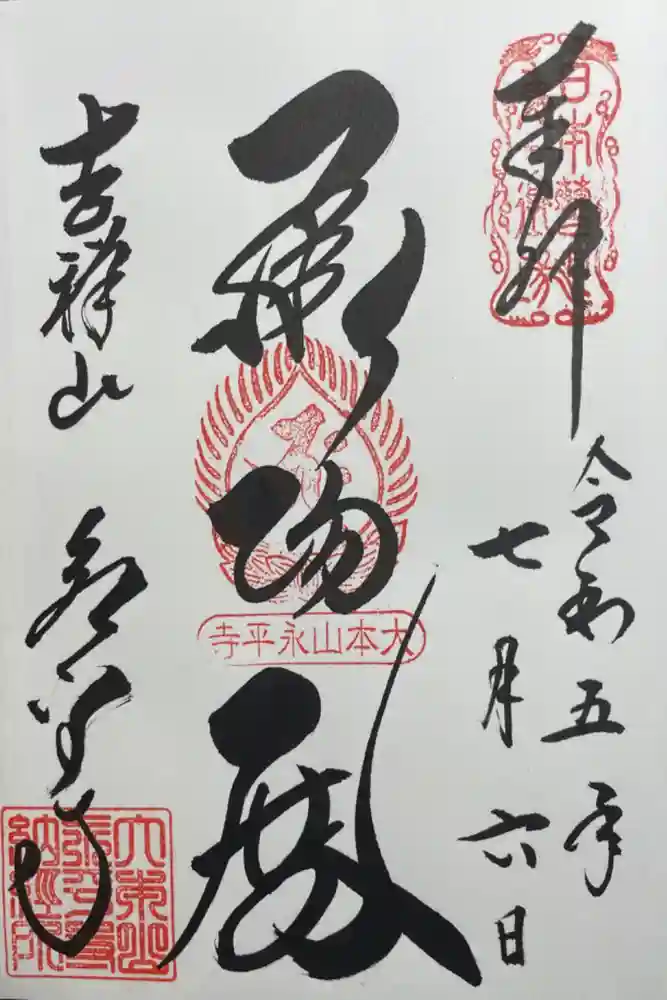 奉拝
令和五年
七月六日
承陽殿
大本山永平寺
吉祥山
永平寺